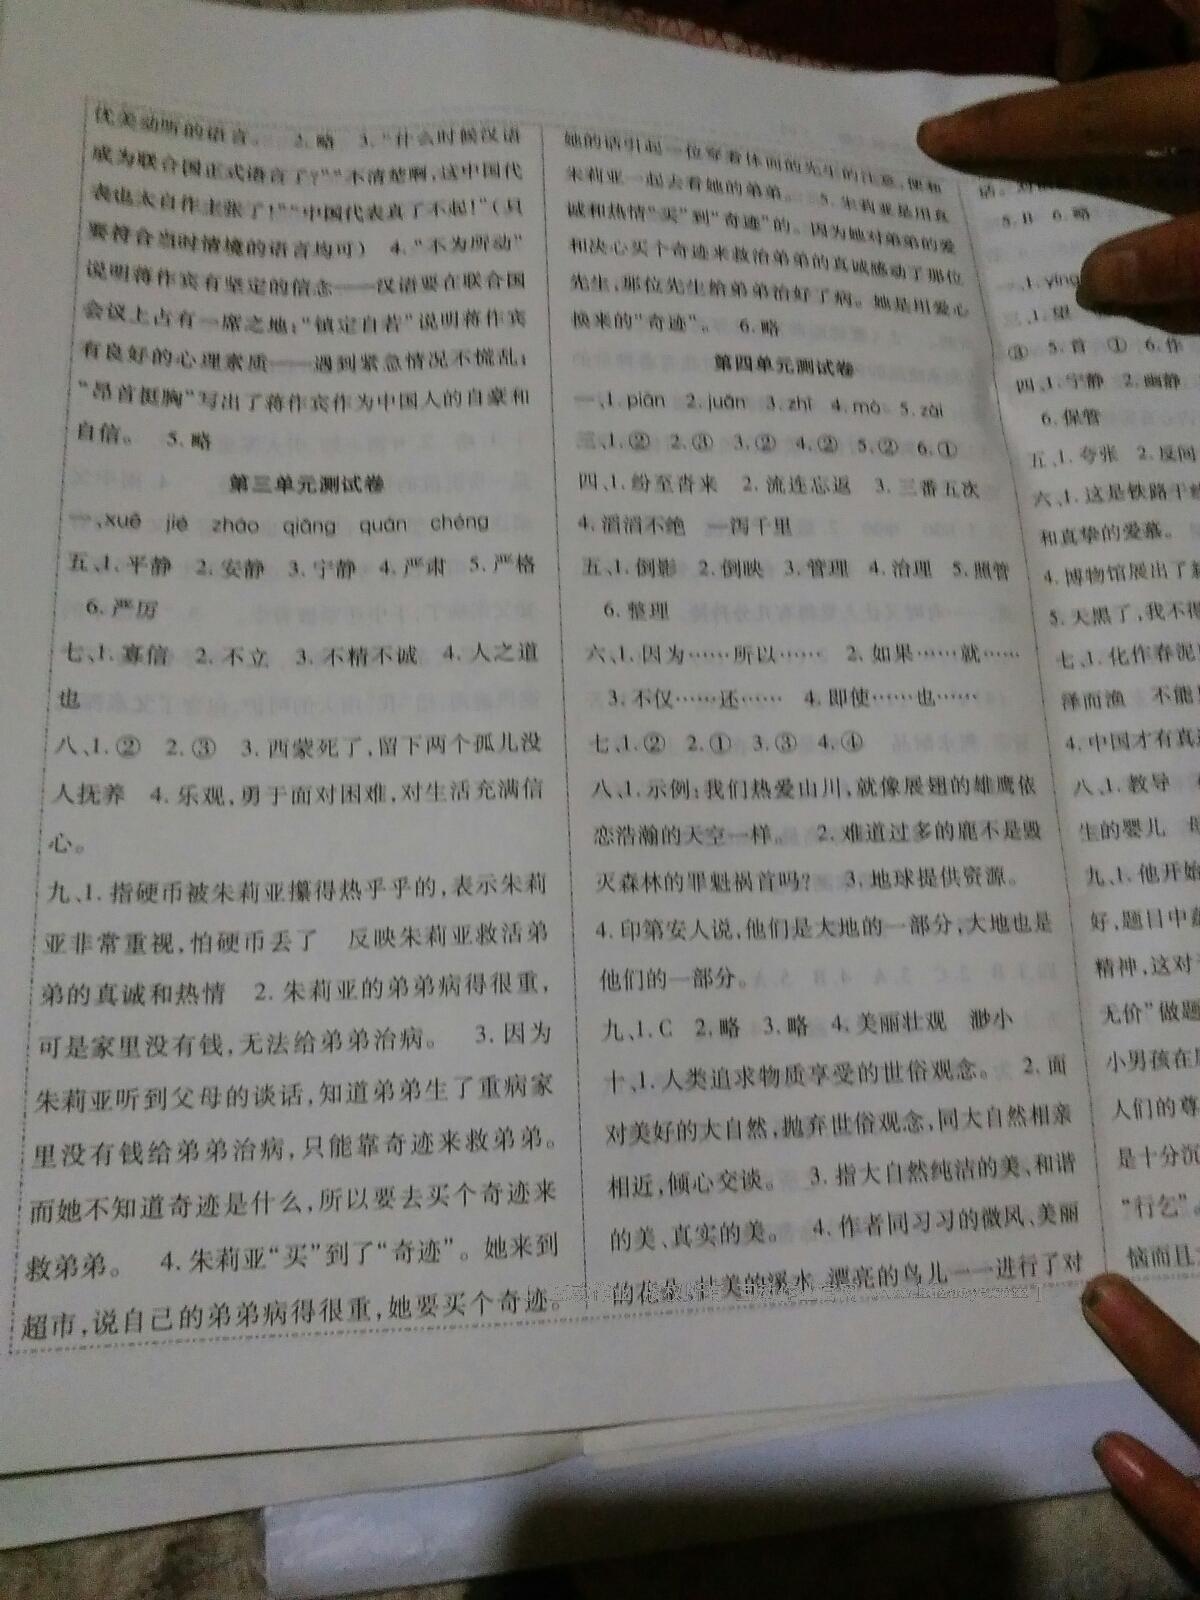 优美动听的语言。 2.略 3.“什么时候汉语
成为联合国正式语言了?”“不清楚啊,这中国代
表也太自作主张了!”“中国代表真了不起!”(只
要符合当时情境的语言均可) 4.“不为所动”
说明蒋作宾有坚定的信念——汉语要在联合国
会议上占有一席之地;“镇定自若”说明蒋作宾
有良好的心理素质——遇到紧急情况不慌乱;
“昂首挺胸”写出了蒋作宾作为中国人的自豪和
自信。 5.略
第三单元测试卷
一、xuē jié zhāo qiāng quán chéng
五、1.平静 2.安静 3.宁静 4.严肃 5.严格
6.严厉
七、1.寡信 2.不立 3.不精不诚 4.人之道
也
八、1.② 2.③ 3.西蒙死了,留下两个孤儿没
人抚养 4.乐观,勇于面对困难,对生活充满信
心。
九、1.指硬币被朱莉亚攥得热乎乎的,表示朱莉
亚非常重视,怕硬币丢了 反映朱莉亚救活弟
弟的真诚和热情 2.朱莉亚的弟弟病得很重,
可是家里没有钱,无法给弟弟治病。 3.因为
朱莉亚听到父母的谈话,知道弟弟生了重病家
里没有钱给弟弟治病,只能靠奇迹来救弟弟。
而她不知道奇迹是什么,所以要去买个奇迹来
救弟弟。 4.朱莉亚“买”到了“奇迹”。她来到
超市,说自己的弟弟病得很重,她要买个奇迹。
她的话引起一位穿着体面的先生的注意,便和
朱莉亚一起去看她的弟弟。 5.朱莉亚是用真
诚和热情“买”到“奇迹”的。因为她对弟弟的爱
和决心买个奇迹来救治弟弟的真诚感动了那位
先生,那位先生给弟弟治好了病。她是用爱心
换来的“奇迹”。 6.略
第四单元测试卷
一、1.piān 2.juān 3.zhī 4.mò 5.zài
三、1.② 2.③ 3.② 4.② 5.② 6.①
四、1.纷至沓来 2.流连忘返 3.三番五次
4.滔滔不绝 一泻千里
五、1.倒影 2.倒映 3.管理 4.治理 5.照管
6.整理
六、1.因为……所以…… 2.如果……就……
3.不仅……还…… 4.即使……也……
七、1.② 2.① 3.③ 4.④
八、1.示例:我们热爱山川,就像展翅的雄鹰依
恋浩瀚的天空一样。 2.难道过多的鹿不是毁
灭森林的罪魁祸首吗? 3.地球提供资源。
4.印第安人说,他们是大地的一部分,大地也是
他们的一部分。
九、1.C 2.略 3.略 4.美丽壮观 渺小
十、1.人类追求物质享受的世俗观念。 2.面
对美好的大自然,抛弃世俗观念,同大自然相亲
相近,倾心交谈。 3.指大自然纯洁的美、和谐
的美、真实的美。 4.作者同习习的微风、美丽
的花朵、甘美的溪水、漂亮的鸟儿一一进行了对
5.B 6.略
三、1.望
③ 5.首 ① 6.作
四、1.宁静 2.幽静
6.保管
五、1.夸张 2.反问
六、1.这是铁路干
和真挚的爱慕。
4.博物馆展出了
5.天黑了,我不得
七、1.化作春泥
泽而渔 不能
4.中国才有真
八、1.教导
生的婴儿
九、1.他开始
好,题目中
精神,这对
无价”做题
小男孩在
人们的尊
是十分沉
“行乞”。
恼而且